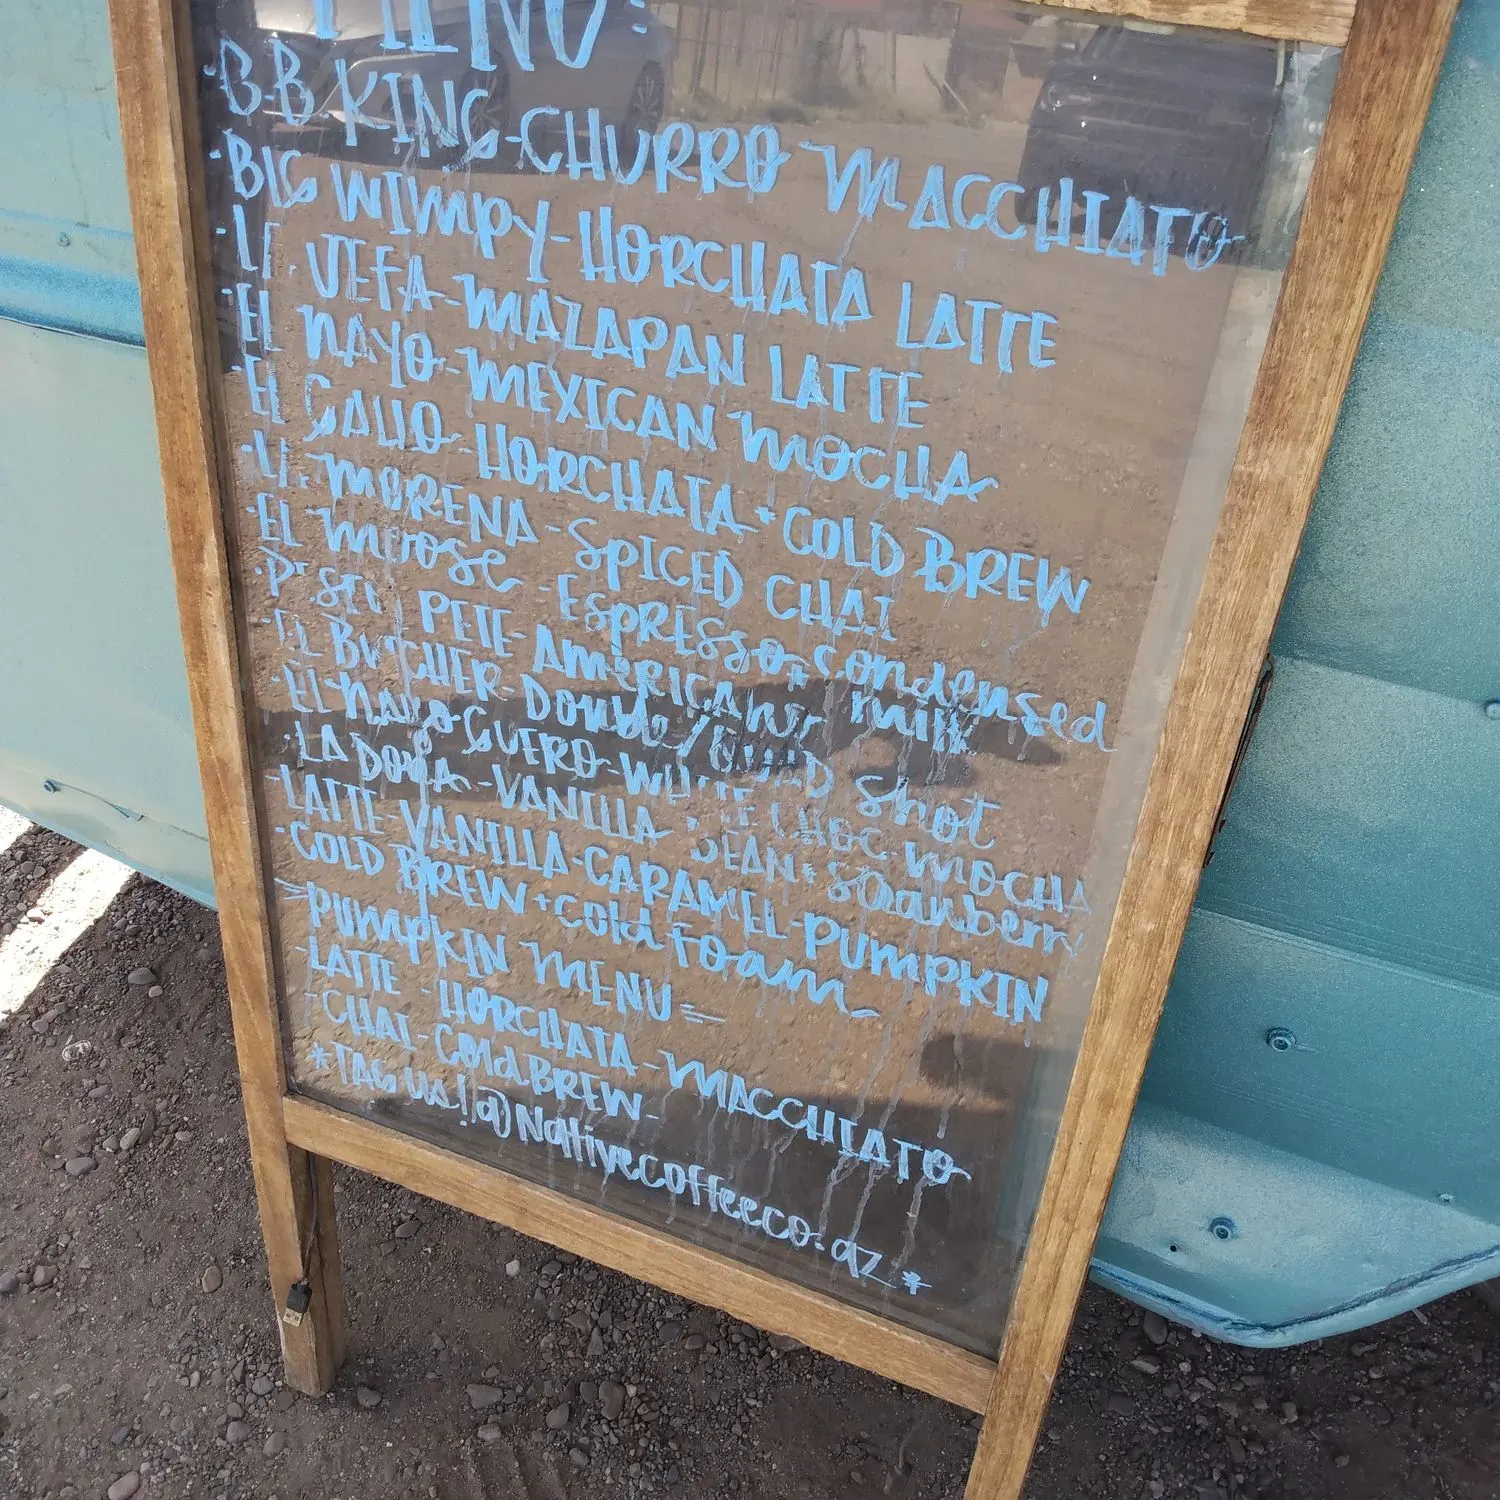 MENU:
·B.B. KING-CHURRO MACCHIATO
·BIG WIMPY-HORCHATA LATTE
·LA JEFA-MAZAPAN LATTE
·EL NAYO-MEXICAN MOCHA
·EL GALLO-HORCHATA+COLD BREW
MORENA-SPICED CHAI
·EL MOOSE-ESPRESSO+condensed milk
PETE-AMERICANO
EL BUTCHER-DOUBLE/QUAD Shot
·EL NAYO GUERO-WHITE CHOC. MOCHA
·LA DOÑA-VANILLA BEAN+Strawberry
·LATTE-VANILLA-CARAMEL-PUMPKIN
·COLD BREW+cold foam
=PUMPKIN MENU=
-LATTE -HORCHATA-MACCHIATO
-CHAI-COLD BREW-
*TAG US!!@Nativecoffeeco.az*